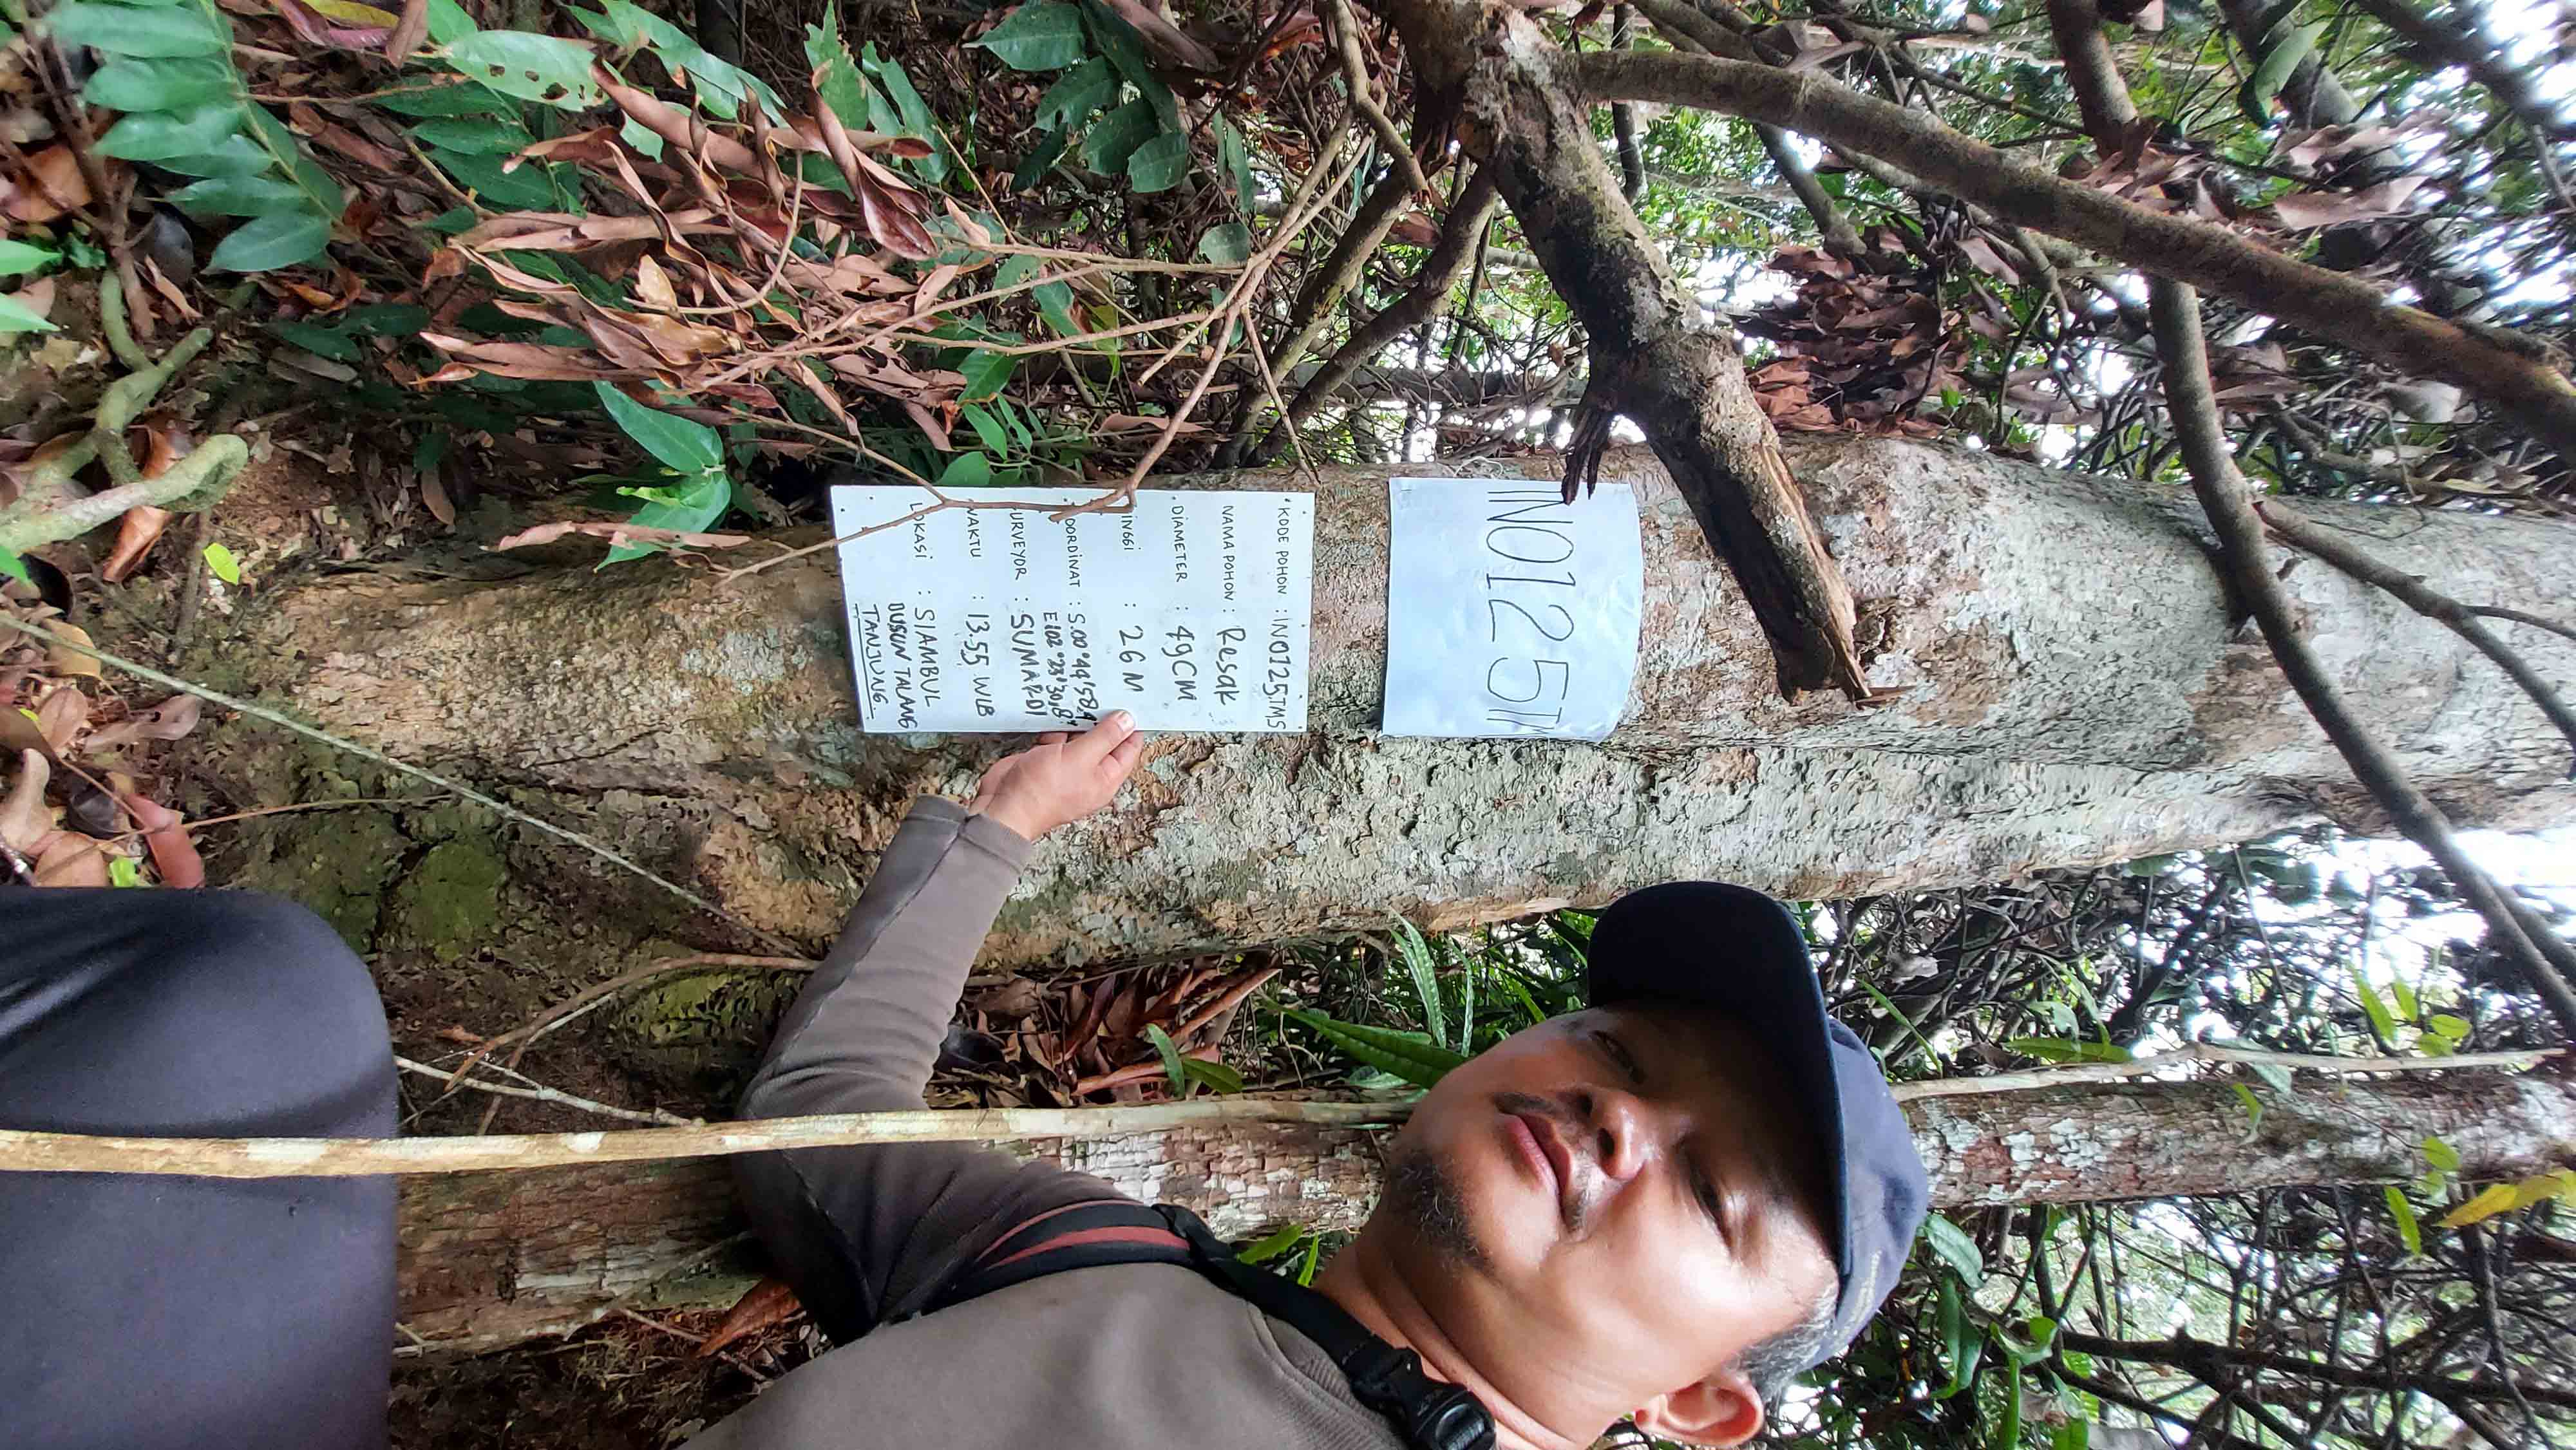 INO125TM
KODE POHON : INO125TMS
NAMA POHON : Resak
DIAMETER : 49CM
INGGI : 26 M
OORDINAT : S.00°44'58,4
E102°23'30,8"
URVEYOR : SUMARDI
WAKTU : 13.55 WIB
LOKASI : SIAMBUL
DUSUN TALANG
TANJUNG.